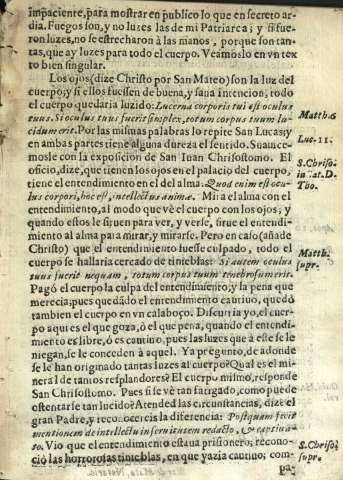 impaciente, para mostrar en publico lo que en secreto ar-
dia. Fuegos son, y no luzes las de mi Patriarca; y si fue-
ron luzes, no se estrecharon à las manos, porque son tan-
tas, que ay luzes para todo el cuerpo. Veamoslo en vn tex
to bien singular.
Los ojos (dize Christo por San Mateo) son la luz del
cuerpo; y si ellos fuessen de buena, y sana intencion, todo
el cuerpo quedaria luzido: Lucerna corporis tui est oculus
tuus. Si oculus tuus fuerit simplex, totum corpus tuum lu-
cidum erit. Por las mismas palabras lo repite San Lucas; y
en ambas partes tiene alguna dureza el sentido. Suauice-
mosle con la exposicion de San Iuan Chrisostomo. El
oficio, dize, que tienen los ojos en el palacio del cuerpo,
tiene el entendimiento en el del alma. Quod enim est ocu-
lus corpori, hoc est, intellectus animæ. Mira el alma con el
entendimiento, al modo que vè el cuerpo con los ojos, y
quando estos le siruen para ver, y verse, sirue el entendi-
miento al alma para mirar, y mirarse. Pero en caso (añade
Christo) que el entendimiento fuesse culpado, todo el
cuerpo se hallaria cercado de tinieblas: Si autem oculus
tuus fuerit nequam, totum corpus tuum tenebrosum erit.
Pagó el cuerpo la culpa del entendimiento, y la pena que
merecia; pues quedãdo el entendimiento cautiuo, quedò
tambien el cuerpo en vn calaboço. Discurri a yo, el cuer-
po aqui es el que goza, ò el que pena, quando el entendi-
miento es libre, ò es cautiuo, pues las luzes que a este se le
niegan, se le conceden à aquel. Ya pregunto, de adonde
se le han originado tantas luzes al cuerpo? Qual es el mi-
neral de tantos resplandores? El cuerpo mismo, responde
San Chrisostomo. Pues si se vè tan fatigado, como puede
ostentarse tan lucido? Atended las circunstancias, dize el
gran Padre, y reconocereis la diferencia: Postquam fecit
mentionem de intellectu in seruitutem redacto, & captiua-
to. Vio que el entendimiento estaua prisionero; recono-
ciò las horrorosas tinieblas, en que yazia cautiuo; com-
pa-
Matth. 6
Luc. 11.
S. Chriso.
in Cat. D.
Tho.
Matth.
supr.
S. Chriso.
supr.